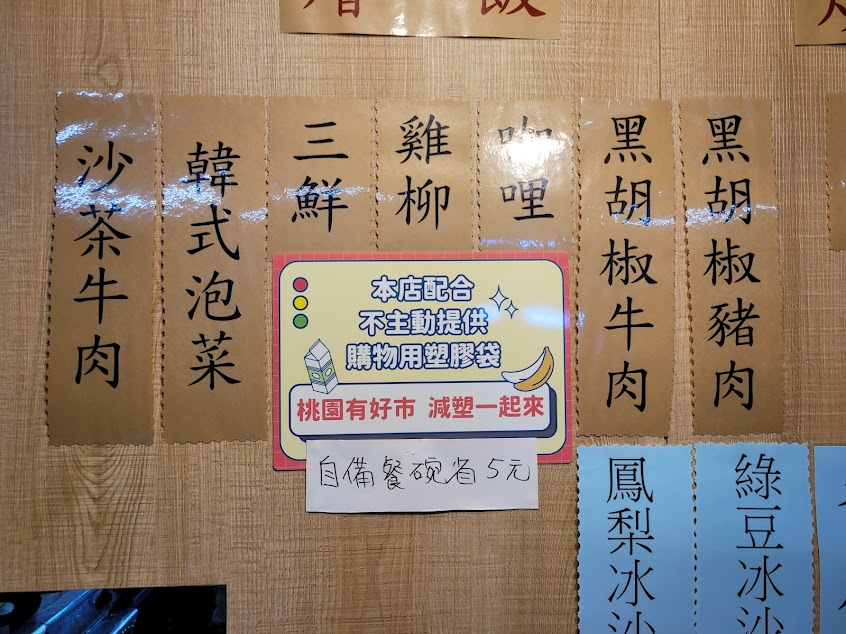 飯
沙茶牛肉
韓式泡菜
三鮮
雞柳
咖哩
黑胡椒牛肉
黑胡椒豬肉
本店配合
不主動提供
購物用塑膠袋
桃園有好市 減塑一起來
自備餐碗省5元
鳳梨冰沙
綠豆冰沙